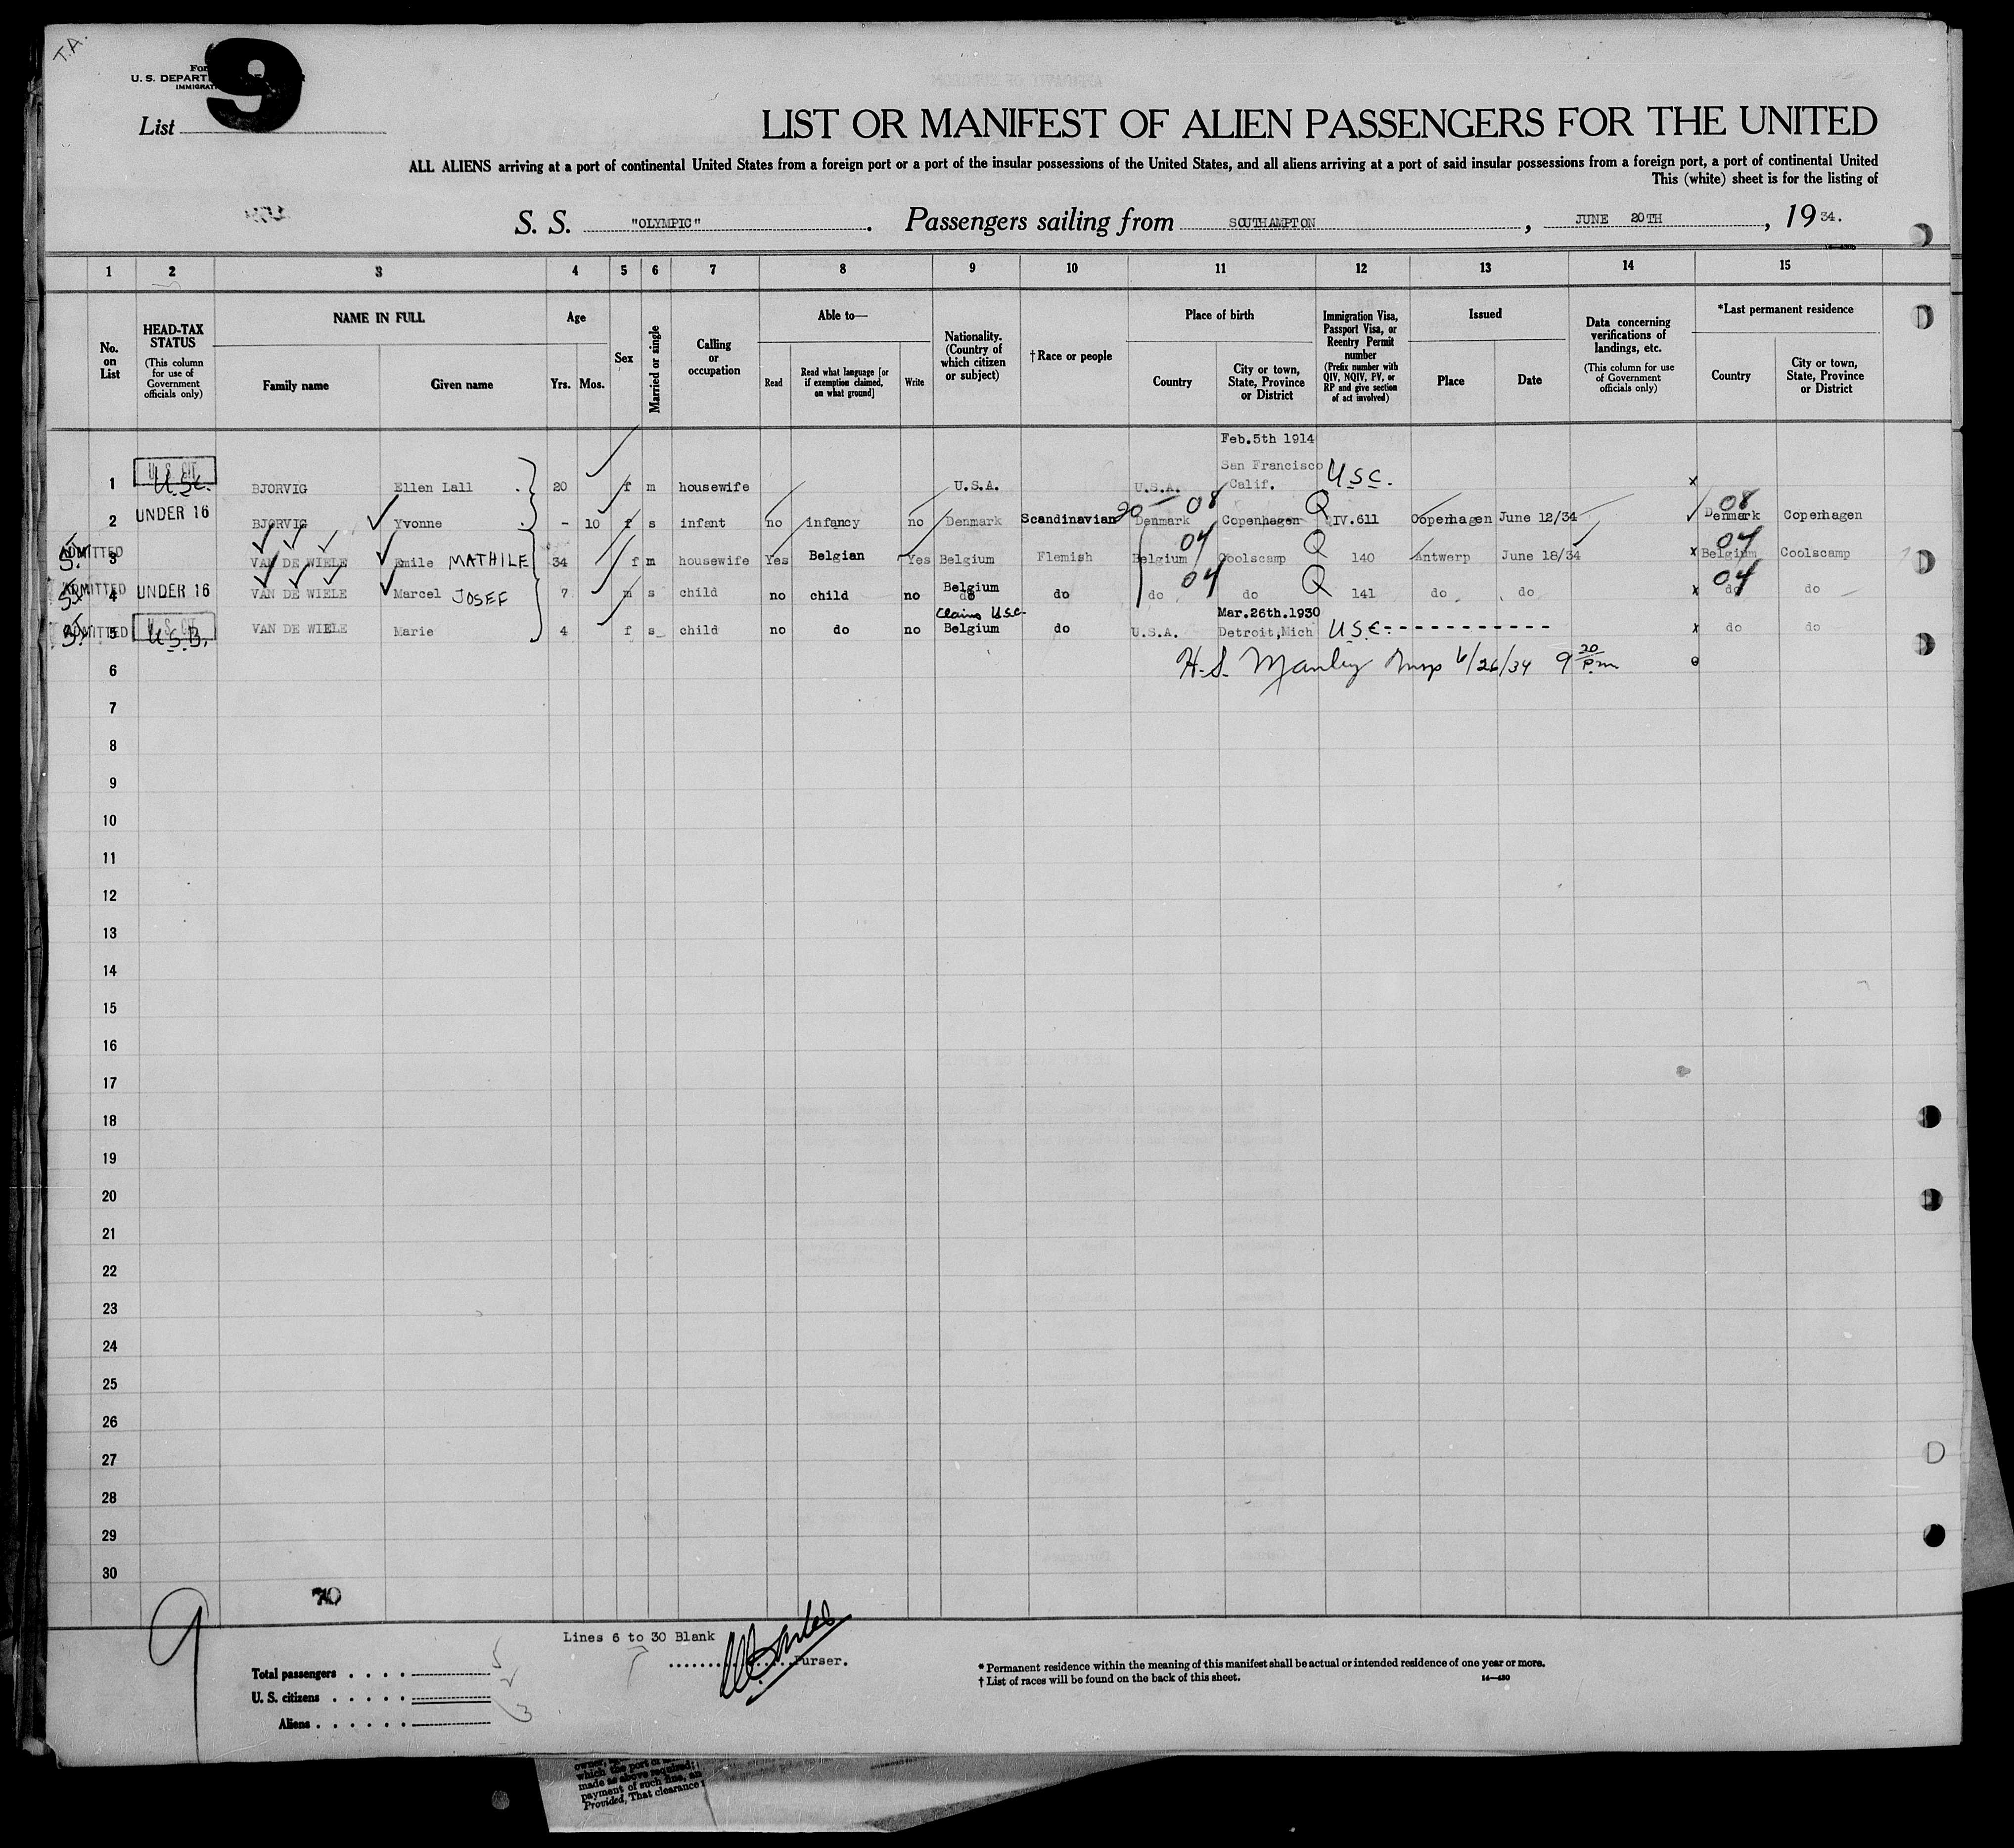 T.A.
9
U. S. DEPART
IMMIGRAT
List
LIST OR MANIFEST OF ALIEN PASSENGERS FOR THE UNITED
ALL ALIENS arriving at a port of continental United States from a foreign port or a port of the insular possessions of the United States, and all aliens arriving at a port of said insular possessions from a foreign port, a port of continental United
This (white) sheet is for the listing of
S. S. "OLYMPIC". Passengers sailing from SOUTHAMPTON, JUNE 20TH, 19 34.
1 2 3 4 5 6 7 8 9 10 11 12 13 14 15
No. on List
HEAD-TAX STATUS
(This column for use of Government officials only)
NAME IN FULL
Family name Given name
Age
Yrs. Mos.
Sex
Married or single
Calling or occupation
Able to—
Read
Read what language [or if exemption claimed, on what ground]
Write
Nationality. (Country of which citizen or subject)
†Race or people
Place of birth
Country
City or town, State, Province or District
Immigration Visa, Passport Visa, or Reentry Permit number
(Prefix number with QIV, NQIV, PV, or RP and give section of act involved)
Issued
Place Date
Data concerning verifications of landings, etc.
(This column for use of Government officials only)
*Last permanent residence
Country
City or town, State, Province or District
Feb.5th 1914
San Francisco
1 U. S. CIT. U.S.C. BJORVIG Ellen Lall 20 f m housewife U.S.A. U.S.A. Calif. U.S.C. x
20 08 Q 08
2 UNDER 16 BJORVIG Yvonne - 10 f s infant no infancy no Denmark Scandinavian Denmark Copenhagen QIV.611 Copenhagen June 12/34 Denmark Copenhagen
04 Q 04
ADMITTED 3 VAN DE WIELE Emile MATHILE 34 f m housewife Yes Belgian Yes Belgium Flemish Belgium Coolscamp 140 Antwerp June 18/34 x Belgium Coolscamp
04 Q 04
ADMITTED 4 UNDER 16 VAN DE WIELE Marcel JOSEF 7 m s child no child no Belgium do do do do 141 do do x do do
Claims U.S.C. Mar.26th.1930
ADMITTED 5 U. S. CIT. U.S.B. VAN DE WIELE Marie 4 f s child no do no Belgium do U.S.A. Detroit,Mich U.S.C.----------- x do do
6 H.S. Manley Insp 6/26/34 9 20 Pm
7
8
9
10
11
12
13
14
15
16
17
18
19
20
21
22
23
24
25
26
27
28
29
30
70
9
Lines 6 to 30 Blank
Purser.
Total passengers . . . . 5
U. S. citizens . . . . . 2
Aliens . . . . . . 3
* Permanent residence within the meaning of this manifest shall be actual or intended residence of one year or more.
† List of races will be found on the back of this sheet. 14—430
which the port of
made as above required;
payment of such fine, an
Provided, That clearance